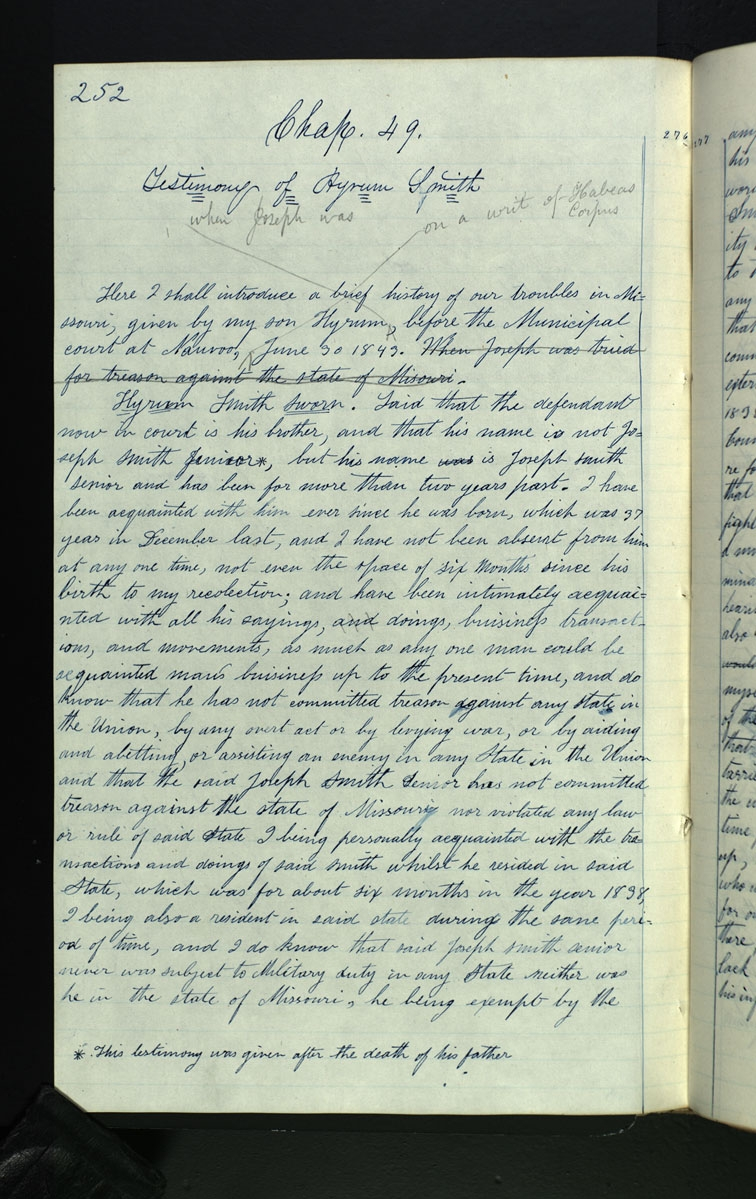 252
Chap. 49.
276
277
Testimony of Hyrum Smith
when Joseph was
on a writ of Habeas
Corpus
Here I shall introduce a brief history of our troubles in Mi=
ssouri, given by my son Hyrum, before the Municipal
court at Nauvoo, June 30 1843. When Joseph was tried
for treason against the state of Misouri.
Hyrum Smith sworn. Said that the defendant
now in court is his brother, and that his name is not Jo=
seph Smith Junior*, but his name was is Joseph smith
senior and has been for more than two years past. I have
been acquainted with him ever since he was born, which was 37
year in December last, and I have not been absent from him
at any one time, not even the space of six Months since his
birth to my recolection; and have been intimately acquai=
nted with all his sayings, and doings, buisiness transact-
ions, and movements, as much as any one man could be
acquainted mans buisiness up to the present time, and do
know that he has not committed treason against any state in
the Union, by any overt act or by levying war, or by aiding
and abetting, or assisting an enemy in any State in the Union
and that the said Joseph Smith Senior has not committed
treason against the state of Missouri nor violated any law
or rule of said State I being personally acquainted with the tra=
nsactions and doings of said smith whilst he resided in said
State, which was for about six months in the year 1838,
I being also a resident in said state during the same peri-
od of time, and I do know that said Joseph smith senior
never was subject to Military duty in any State neither was
he in the state of Missouri, he being exempt by the
* This testimony was given after the death of his father